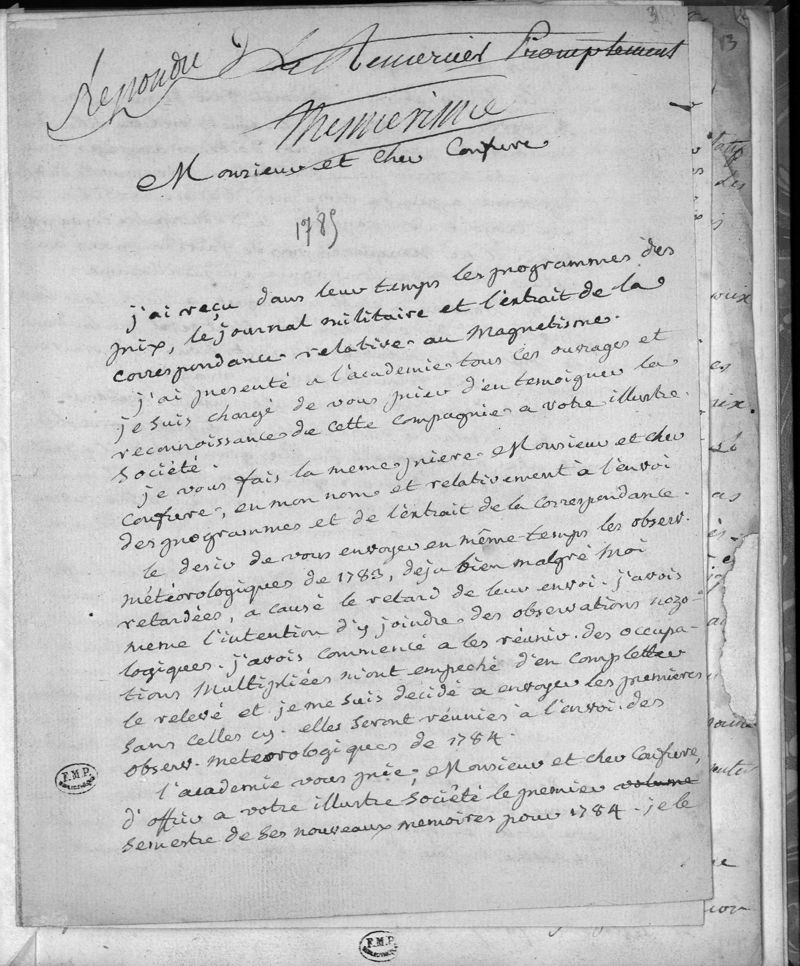 3
13
Répondu
Le Remercier Promptement
Monsieur et cher Confrere
1785
j'ai reçu dans leur temps les programmes des
prix, le journal militaire et l'extrait de la
correspondance relative au Magnetisme.
j'ai presenté a l'academie tous ces ouvrages et
je suis chargé de vous prier d'en temoigner la
reconnoissance de cette compagnie a votre illustre
Société.
je vous fais la meme priere Monsieur et cher
Confrere, en mon nom et relativement à l'envoi
des programmes et de l'extrait de la Correspondance.
le desir de vous envoyer en même-temps les observ.
météorologiques de 1783, deja bien malgré moi
retardées, a causé le retard de leur envoi. j'avois
meme l'intention d'y joindre des observations nozo-
logiques. j'avois commencé a les réunir. des occupa-
tions Multipliées m'ont empeché d'en completter
le relevé et je me suis decidé a envoyer les premieres
sans celles cy. elles seront réunies à l'envoi des
observ. meteorologiques de 1784.
l'academie vous prie, Monsieur et cher Confrere,
d'offrir a votre illustre Société le premier volume
semestre de ses nouveaux memoires pour 1784. je le
F.M.P.
F.M.P.